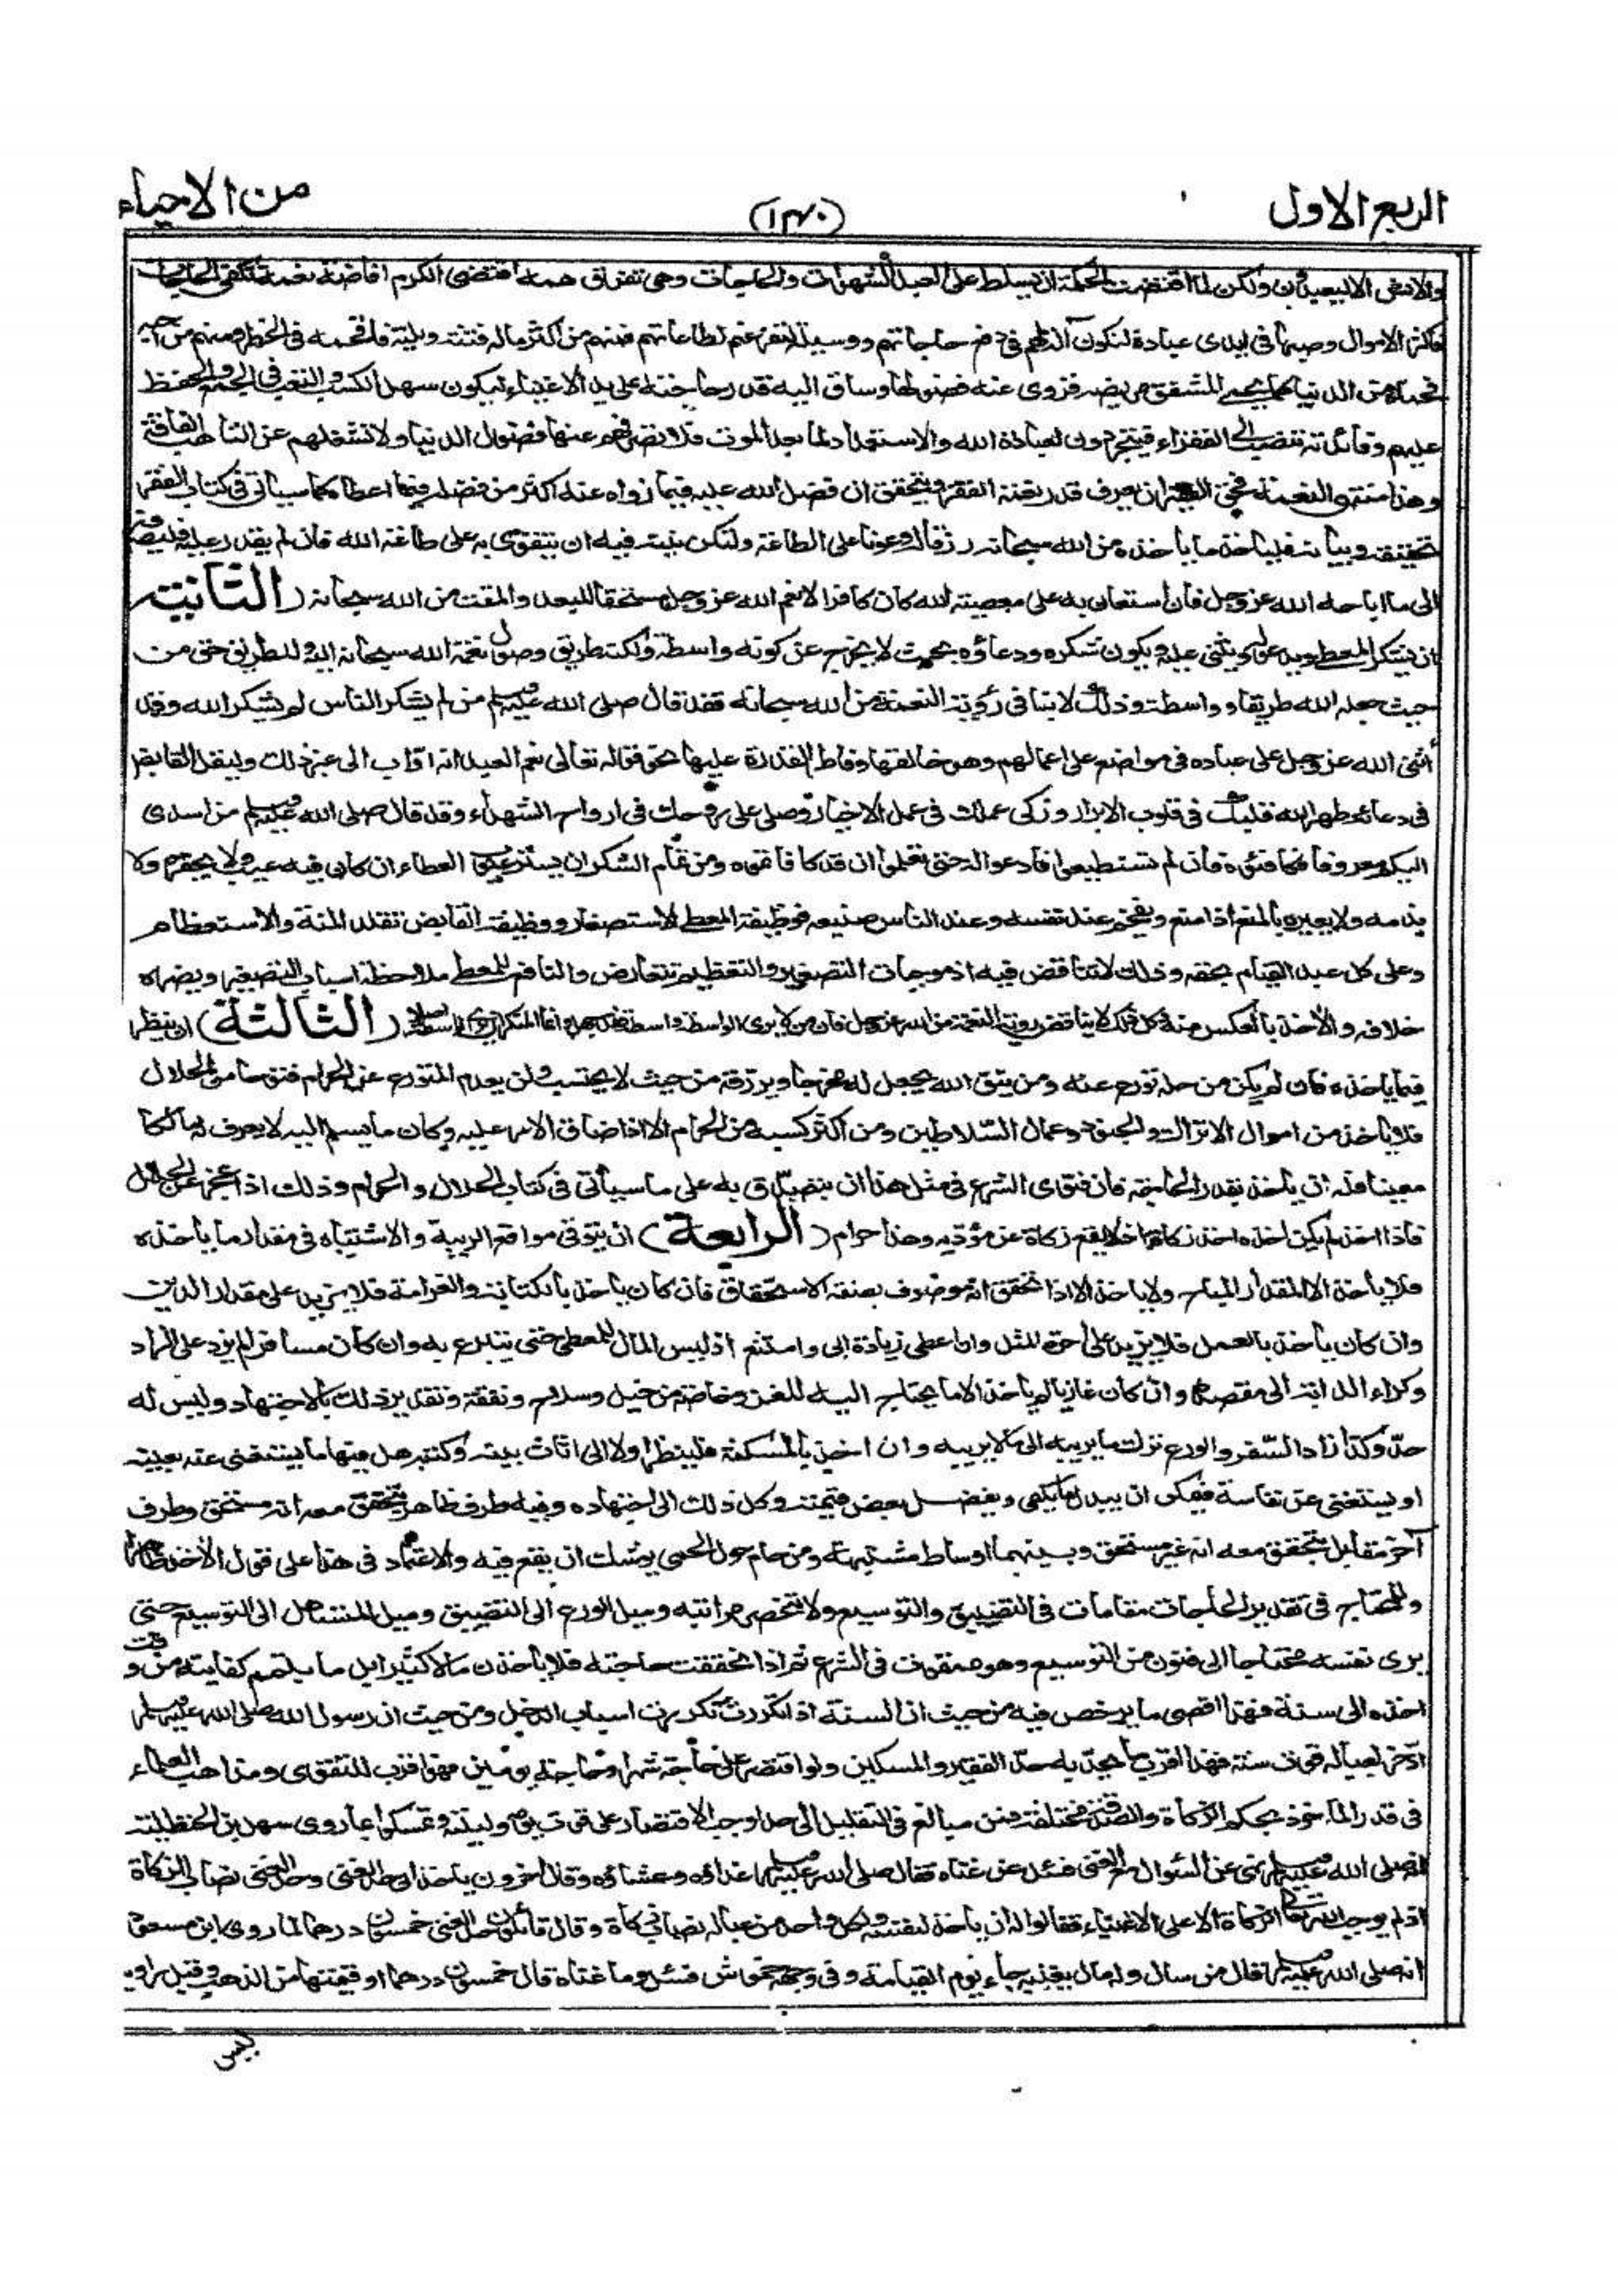 الربع الاول
(١٣٠)
من الاحياء
والانس الا ليعبدون ولكن لما اقتضت الحكمة ان يسلط على العبد الشهوات والحاجات وهي تفرق همه اقتضى الكرم افاضة نعمة تكفي الحاجات
فاكثر الاموال وصبها في ايدي عباده لتكون آلة لهم في دفع حاجاتهم ووسيلة لتفرغهم لطاعاتهم فمنهم من اكثر ماله فتنة وبلية فاقحمه في الخطر ومنهم من احبه
فحماه من الدنيا كما يحمي المشفق مريضه فزوى عنه فضولها وساق اليه قدر حاجته على يد الاغنياء ليكون سهل الكسب والتعب في الجمع والحفظ
عليهم وفائدته تنصب الى الفقراء فيتجردون لعبادة الله والاستعداد لما بعد الموت فلا تصرفهم عنها فضول الدنيا ولا تشغلهم عن التأهب الفاقة
وهذا منتهى النعمة فحق الفقير ان يعرف قدر نعمة الفقر ويتحقق ان فضل الله عليه فيما زواه عنه اكثر من فضله فيما اعطاه كما سيأتي في كتاب الفقر
تحقيقه وبيانه فليأخذ ما ياخذه من الله سبحانه رزقا له وعونا على الطاعة ولتكن نيته فيه ان يتقوى به على طاعة الله فان لم يقدر عليه فليصرفه
الى ما اباحه الله عز وجل فان استعان به على معصية الله كان كافرا لانعم الله عز وجل مستحقا للبعد والمقت من الله سبحانه (الثانية
ان يشكر المعطي ويدعو له ويثني عليه ويكون شكره ودعاؤه بحيث لا يخرج عن كونه واسطة ولكنه طريق وصول نعمة الله سبحانه اليه وللطريق حق من
حيث جعله الله طريقا وواسطة وذلك لا ينافي رؤية النعمة من الله سبحانه فقد قال صلى الله عليه وسلم من لم يشكر الناس لم يشكر الله وقد
أثنى الله عز وجل على عباده في مواضع على اعمالهم وهو خالقها وفاطر القدرة عليها نحو قوله تعالى نعم العبد انه اواب الى غير ذلك وليقل القابض
في دعائه طهر الله قلبك في قلوب الابرار وزكى عملك في عمل الاخيار وصلى على روحك في ارواح الشهداء وقد قال صلى الله عليه وسلم من اسدى
اليكم معروفا فكافئوه فان لم تستطيعوا فادعوا له حتى تعلموا ان قد كافأتموه ومن تمام الشكر ان يستر عيوب العطاء ان كان فيه عيب ولا يحقره ولا
يذمه ولا يعيره بالمنع اذا منع ويفخم عند نفسه وعند الناس صنيعه فوظيفة المعطي الاستصغار ووظيفة القابض تقلد المنة والاستعظام
وعلى كل عبد القيام بحقه وذلك لا تناقض فيه اذ موجبات التصغير والتعظيم تتعارض والنافع للمعطي ملاحظة اسباب التصغير ويضره
خلافه والآخذ بالعكس منه وكل ذلك لا يناقض رؤية النعمة من الله عز وجل فان من لا يرى الواسطة واسطة فقد جهل وانما المنكر ان يرى الواسطة اصلا (الثالثة) ان ينظر
فيما ياخذه فان لم يكن من حله تورع عنه ومن يتق الله يجعل له مخرجا ويرزقه من حيث لا يحتسب ولن يعدم المتورع عن الحرام فتوحا من الحلال
فلا يأخذ من اموال الاتراك والجنود وعمال السلاطين ومن اكثر كسبه من الحرام الا اذا ضاق الامر عليه وكان ما يسلم اليه لا يعرف له مالكا
معينا فله ان ياخذ بقدر الحاجة فان فتوى الشرع في مثل هذا ان يتصدق به على ما سيأتي في كتاب الحلال والحرام وذلك اذا عجز عن الحلال
فاذا اخذ لم يكن اخذه اخذ زكاة اذ لا يقع زكاة عن مؤديه وهذا حرام (الرابعة) ان يتوقى مواقع الريبة والاشتباه في مقدار ما يأخذه
فلا يأخذ الا المقدار المباح ولا ياخذ الا اذا تحقق انه موصوف بصفة الاستحقاق فان كان يأخذ بالكتابة والغرامة فلا يزيد على مقدار الدين
وان كان يأخذ بالعمل فلا يزيد على اجرة المثل وان اعطي زيادة ابى وامتنع اذ ليس المال للمعطي حتى يتبرع به وان كان مسافرا لم يزد على الزاد
وكراء الدابة الى مقصده وان كان غازيا لم ياخذ الا ما يحتاج اليه للغزو خاصة من خيل وسلاح ونفقة وتقدير ذلك بالاجتهاد وليس له
حد وكذا زاد السفر والورع ترك ما يريبه الى ما لا يريبه وان اخذ بالمسكنة فلينظر اولا الى اثاث بيته وكتبه هل فيها ما يستغنى عنه بعينه
او يستغنى عن نفاسة فيمكن ان يبدل بما يكفي ويفضل بعض قيمته وكل ذلك الى اجتهاده وفيه طرف ظاهر يتحقق معه انه مستحق وطرف
آخر مقابل يتحقق معه انه غير مستحق وبينهما اوساط مشتبهة ومن حام حول الحمى يوشك ان يقع فيه والاعتماد في هذا على قول الآخذ ظاهرا
وللمحتاج في تقدير الحاجات مقامات في التضييق والتوسيع ولا تنحصر مراتبه وميل الورع الى التضييق وميل المتساهل الى التوسيع حتى
يرى نفسه محتاجا الى فنون من التوسيع وهو ممقوت في الشرع ثم اذا تحققت حاجته فلا ياخذن مالا كثيرا بل ما يتمم كفايته من وقت
اخذه الى سنة فهذا اقصى ما يرخص فيه من حيث ان السنة اذا تكررت تكررت اسباب الدخل ومن حيث ان رسول الله صلى الله عليه وسلم
ادخر لعياله قوت سنة فهذا اقرب ما يحد به حد الفقير والمسكين ولو اقتصر على حاجة شهر او حاجة يومين فهو اقرب للتقوى ومذاهب العلماء
في قدر المأخوذ بحكم الزكاة والصدقة مختلفة فمن مبالغ في التقليل الى حد اوجب الاقتصار على قوت يومه وليلته وتمسكوا بما روى سهل بن الحنظلية
انه صلى الله عليه وسلم نهى عن السؤال مع الغنى فسئل عن غناه فقال صلى الله عليه وسلم غداؤه وعشاؤه وقال آخرون ياخذ الى حد الغنى وحد الغنى نصاب الزكاة
اذ لم يوجب الله تعالى الزكاة الا على الاغنياء فقالوا له ان ياخذ لنفسه ولكل واحد من عياله نصاب زكاة وقال قائلون حد الغنى خمسون درهما لما روى ابن مسعود
انه صلى الله عليه وسلم قال من سأل وله مال يغنيه جاء يوم القيامة وفي وجهه خموش فسئل وما غناه قال خمسون درهما او قيمتها من الذهب وقيل راويه
ليس